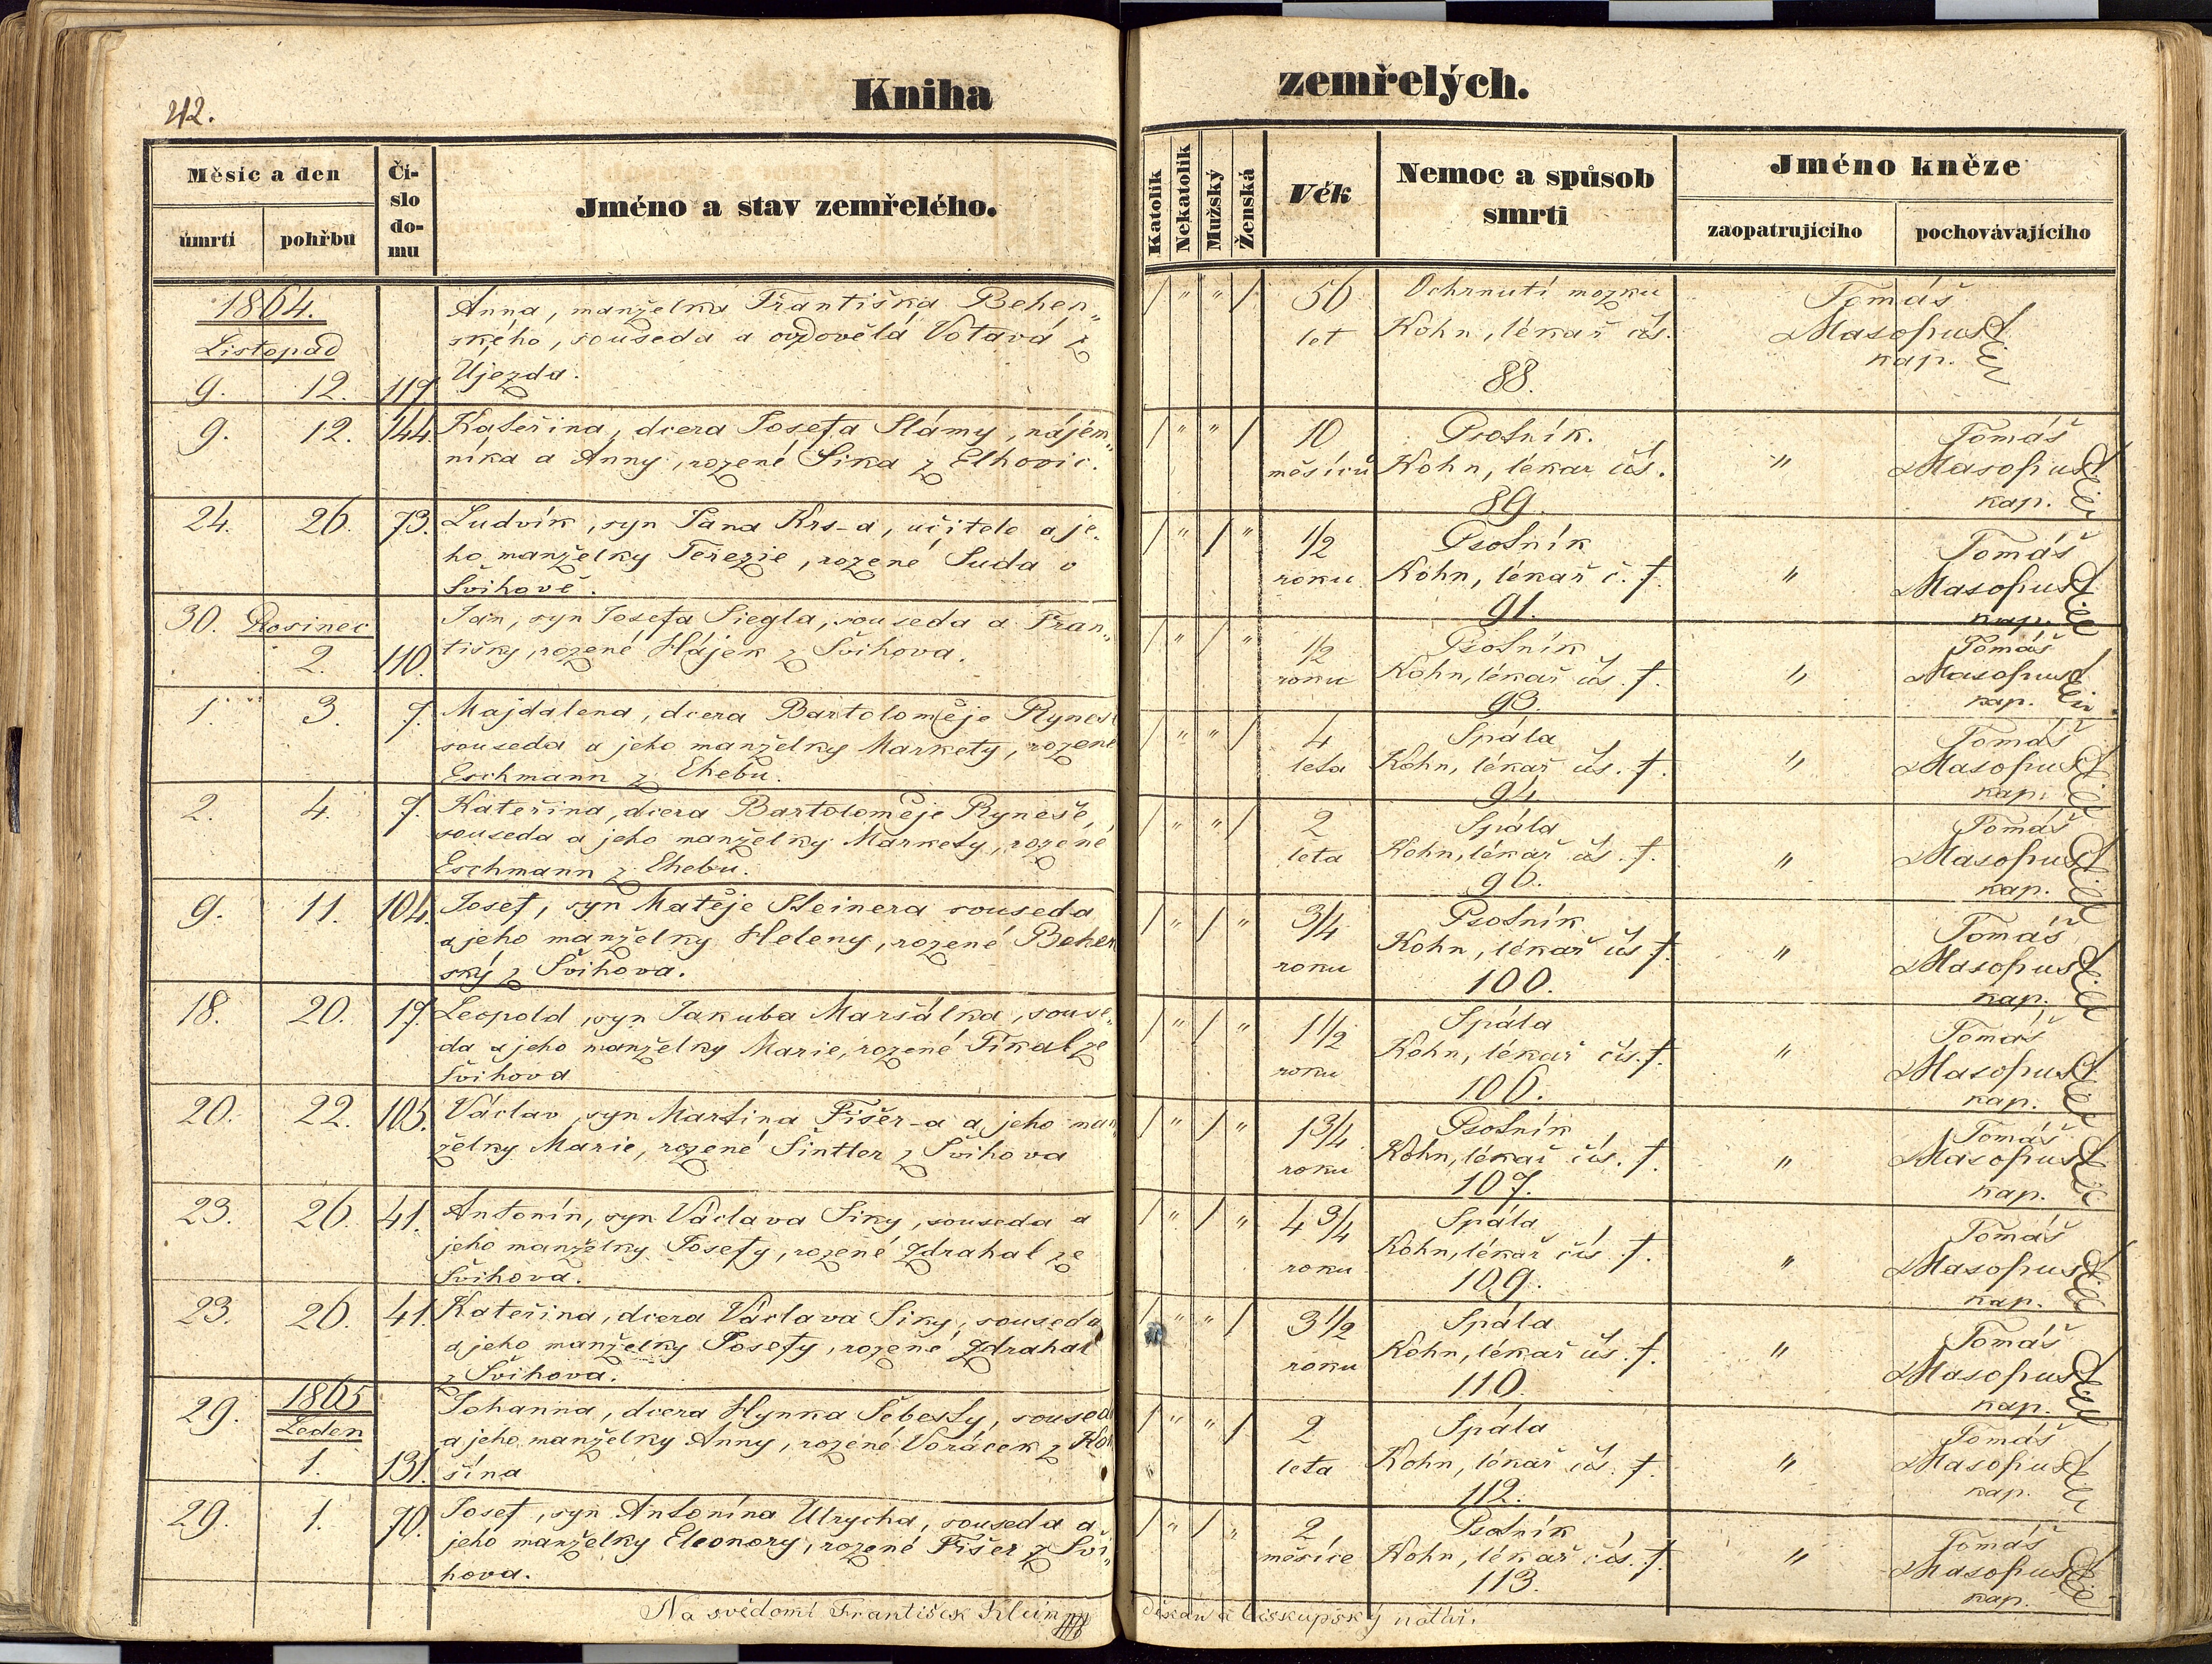 42.
Kniha
zemřelých.
Měsíc a den
úmrtí
pohřbu
Čí-
slo
do-
mu
Jméno a stav zemřelého.
Katolík
Nekatolík
Mužský
Ženská
Věk
Nemoc a spůsob
smrti
Jméno kněze
zaopatrujícího
pochovávajícího
1864.
Listopad
9. 12. 119
Anna, manželka Františka Behen„
ského, souseda a ovdovělá Votavá z
Újezda.
/ " " / 56
let
Ochrnutí mozku
Kohn, lékař čís.
88.
Tomáš
Masopust
kap.
9. 12. 144.
Kateřina, dcera Josefa Slámy, nájem„
níka a Anny, rozené Šika z Elhovic.
/ " " / 10
měsíců
Psotník.
Kohn, lékar čís.
89.
"
Tomáš
Masopust
kap.
24. 26. 73.
Ludvík, syn Jana Krs-a, učitele a je„
ho manželky Terezie, rozené Suda v
Švihově.
/ " / " 1/2
roku
Psotník
Kohn, lékař č. f.
91.
"
Tomáš
Masopust
kap.
30. Prosinec
2. 110.
Jan, syn Josefa Siegla, souseda a Fran„
tišky, rozené Hájek z Švihova.
/ " / " 1/2
roku
Psotník
Kohn, lékař čís. f.
93.
"
Tomáš
Masopust
kap.
1. 3. 7.
Majdalena, dcera Bartoloměje Ryneš
souseda a jeho manželky Markety, rozené
Eschmann z Chebu.
/ " " / 4
leta
Spála
Kohn, lékař čís. f.
94.
"
Tomáš
Masopust
kap.
2. 4. 7.
Kateřina, dcera Bartoloměje Ryneše,
souseda a jeho manželky Markety, rozené
Eschmann z Chebu.
/ " " / 2
leta
Spála
Kohn, lékař čís. f.
96.
"
Tomáš
Masopust
kap.
9. 11. 104.
Josef, syn Matěje Steinera souseda
a jeho manželky Heleny, rozené Behen
ský z Švihova.
/ " / " 3/4
roku
Psotník
Kohn, lékař čís f.
100.
"
Tomáš
Masopust
kap.
18. 20. 17.
Leopold, syn Jakuba Maršálka, souse„
da a jeho manželky Marie, rozené Fikal ze
Švihova
/ " / " 1 1/2
roku
Spála
Kohn, lékař čís. f.
106.
"
Tomáš
Masopust
kap.
20. 22. 105.
Václav, syn Martina Fišer-a a jeho man
želky Marie, rozené Šintler z Švihova
/ " / " 1 3/4
roku
Psotník
Kohn, lékař čís. f.
107.
"
Tomáš
Masopust
kap.
23. 26. 41.
Antonín, syn Václava Siky, souseda a
jeho manželky Josefy, rozené Zdrahal ze
Švihova.
/ " / " 4 3/4
roku
Spála
Kohn, lékař čís. f.
109.
"
Tomáš
Masopust
kap.
23. 26. 41.
Kateřina, dcera Václava Siky, souseda
a jeho manželky Josefy, rozené Zdrahal
z Švihova.
/ " " / 3 1/2
roku
Spála
Kohn, lékař čís. f.
110.
"
Tomáš
Masopust
kap.
29. 1865
Leden
1. 131.
Johanna, dcera Hynka Šebesty, souseda
a jeho manželky Anny, rozené Voráček z Ko
šína
/ " " / 2
leta
Spála
Kohn, lékař čís. f.
112.
"
Tomáš
Masopust
kap.
29. 1. 70.
Josef, syn Antonína Ulrycha, souseda a
jeho manželky Eleonory, rozené Fišer z Švi„
hova.
/ " / " 2
měsíce
Psotník
Kohn, lékař čís. f.
113.
"
Tomáš
Masopust
kap.
Na svědomí František
děkan a biskupský notář.